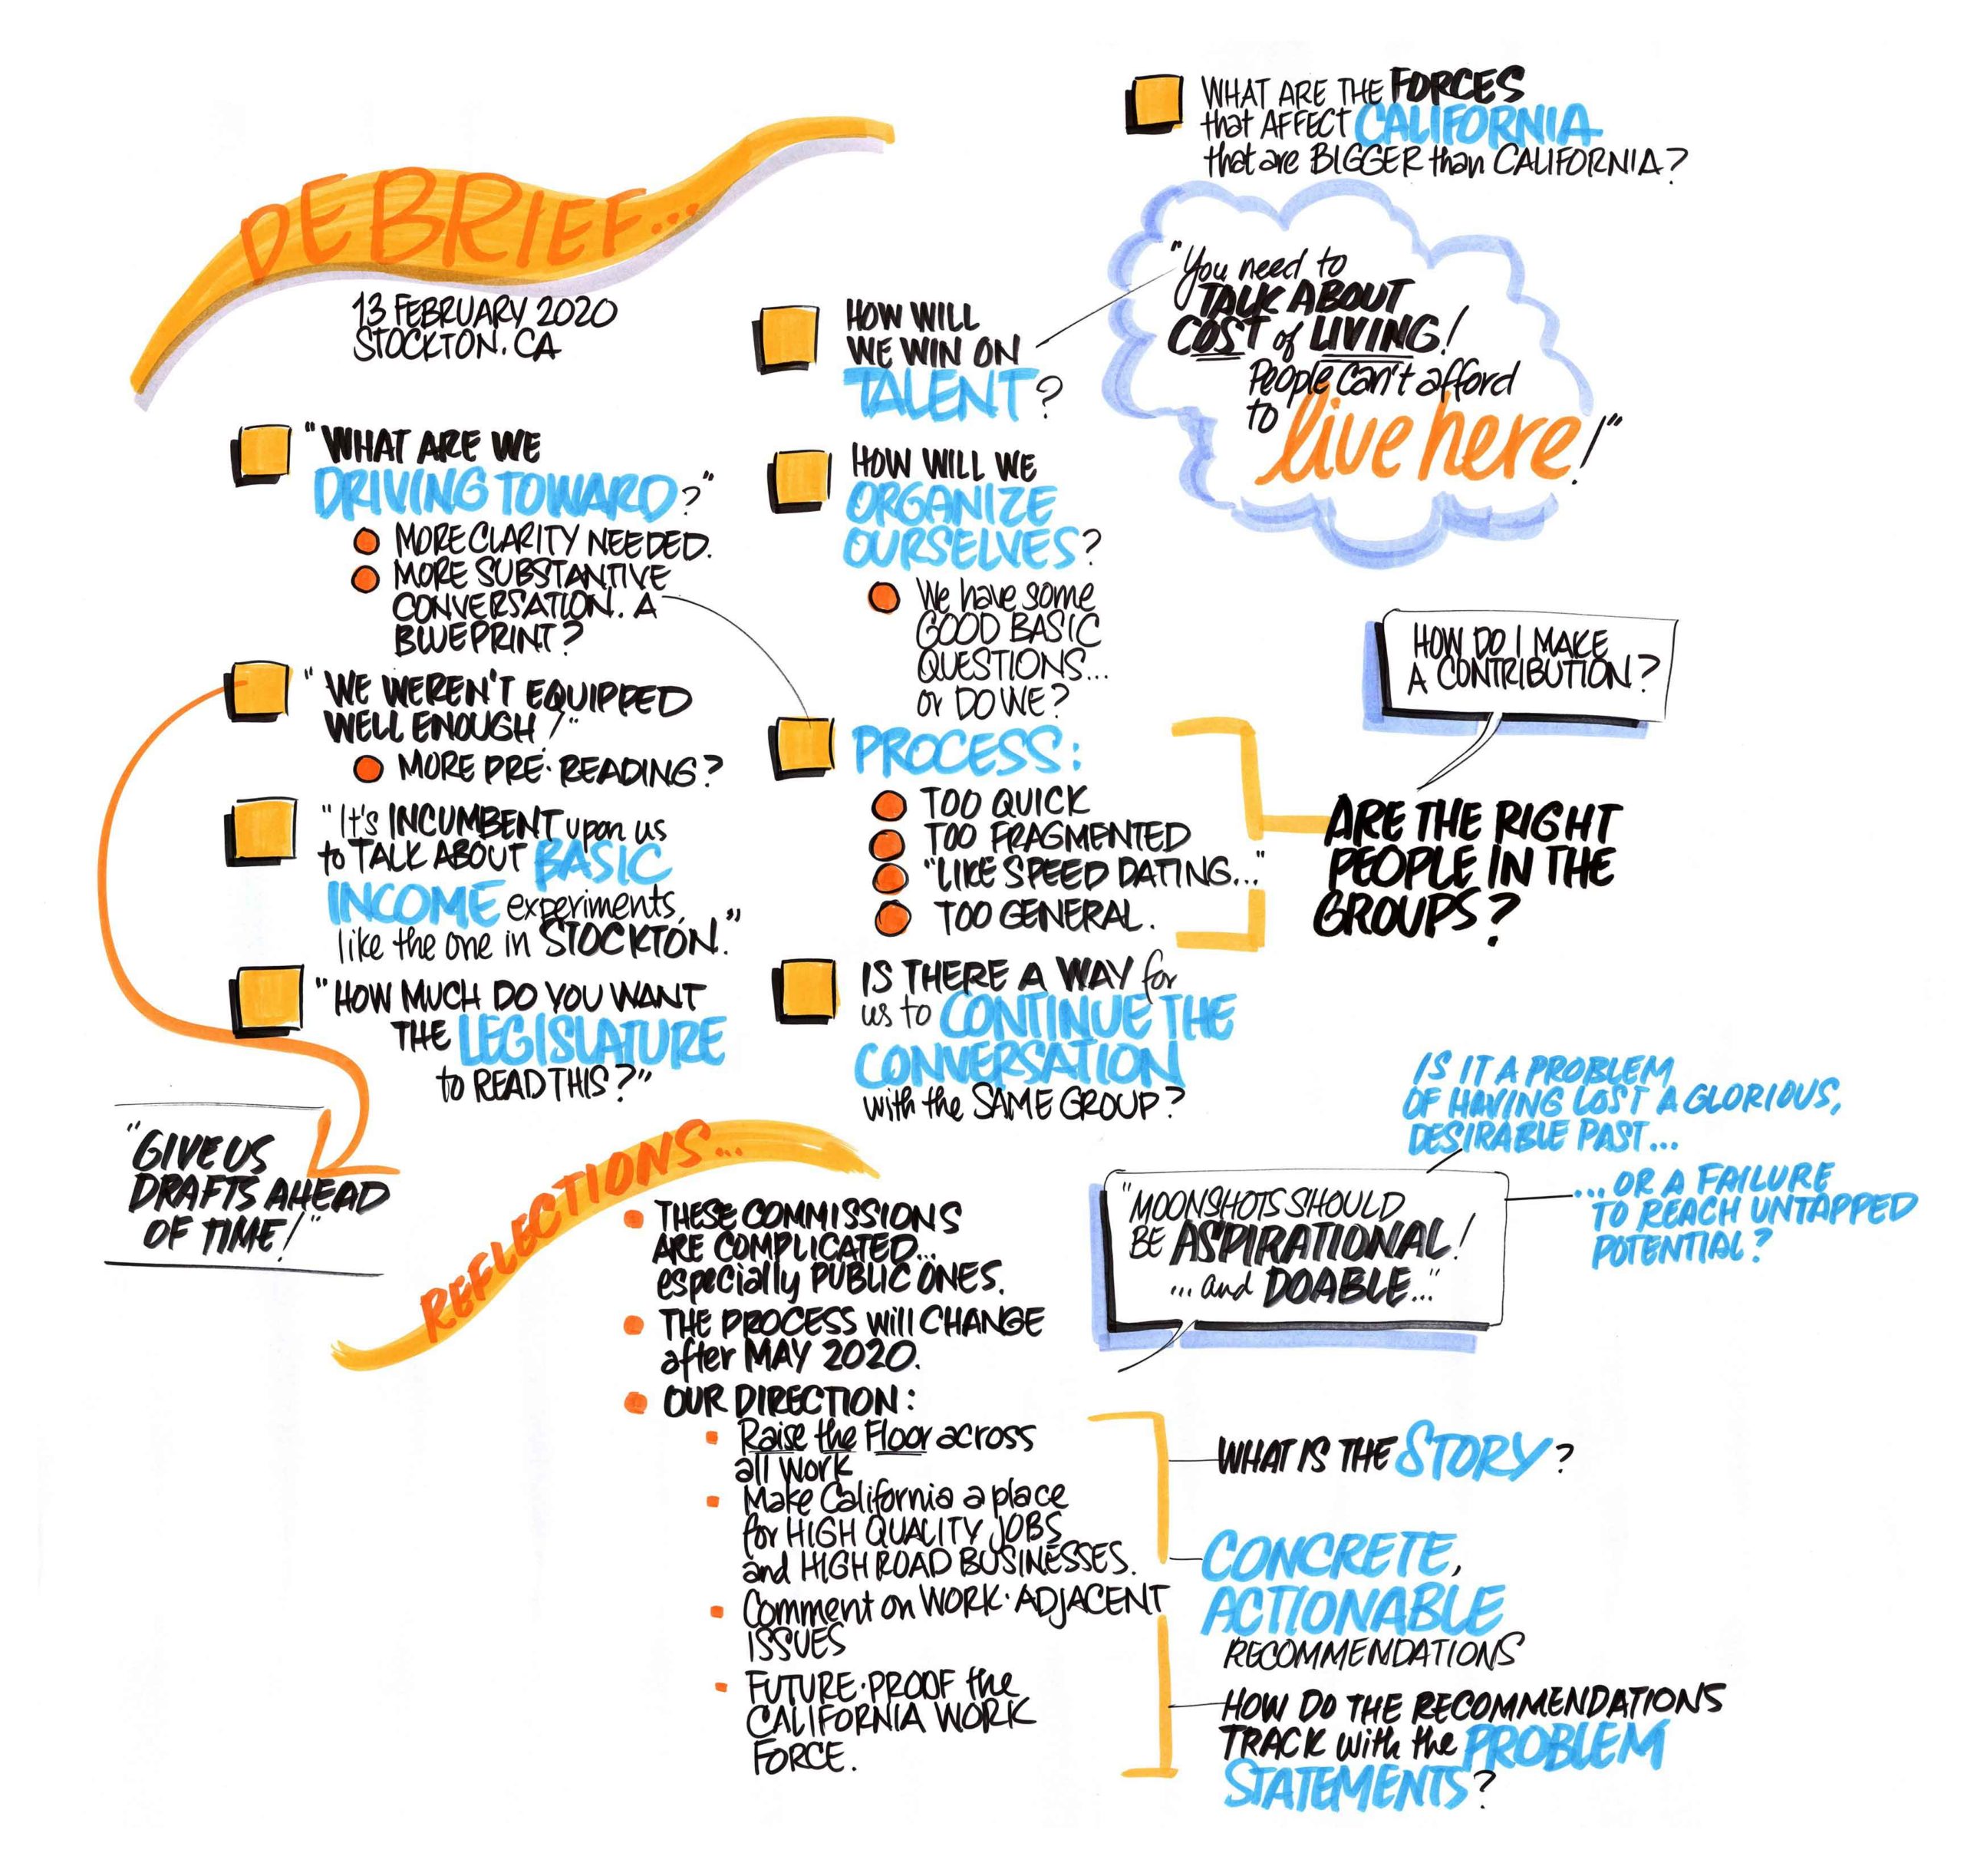 DEBRIEF...
13 FEBRUARY 2020
STOCKTON, CA
"WHAT ARE WE
DRIVING TOWARD?"
MORE CLARITY NEEDED.
MORE SUBSTANTIVE
CONVERSATION. A
BLUEPRINT?
"WE WEREN'T EQUIPPED
WELL ENOUGH!"
MORE PRE-READING?
"It's INCUMBENT upon us
to TALK ABOUT BASIC
INCOME experiments,
like the one in STOCKTON."
"HOW MUCH DO YOU WANT
THE LEGISLATURE
to READ THIS?"
"GIVE US
DRAFTS AHEAD
OF TIME!"
HOW WILL
WE WIN ON
TALENT?
HOW WILL WE
ORGANIZE
OURSELVES?
We have some
GOOD BASIC
QUESTIONS...
or DO WE?
PROCESS:
TOO QUICK
TOO FRAGMENTED
"LIKE SPEED DATING..."
TOO GENERAL.
IS THERE A WAY for
us to CONTINUE THE
CONVERSATION
with the SAME GROUP?
WHAT ARE THE FORCES
that AFFECT CALIFORNIA
that are BIGGER than CALIFORNIA?
"You need to
TALK ABOUT
COST of LIVING!
People can't afford
to live here!"
HOW DO I MAKE
A CONTRIBUTION?
ARE THE RIGHT
PEOPLE IN THE
GROUPS?
REFLECTIONS...
THESE COMMISSIONS
ARE COMPLICATED...
especially PUBLIC ONES.
THE PROCESS will CHANGE
after MAY 2020.
OUR DIRECTION:
Raise the Floor across
all work
Make California a place
for HIGH QUALITY JOBS
and HIGH ROAD BUSINESSES.
Comment on WORK-ADJACENT
ISSUES
FUTURE-PROOF the
CALIFORNIA WORK
FORCE.
"MOONSHOTS SHOULD
BE ASPIRATIONAL!
... and DOABLE..."
IS IT A PROBLEM
OF HAVING LOST A GLORIOUS,
DESIRABLE PAST...
... OR A FAILURE
TO REACH UNTAPPED
POTENTIAL?
WHAT IS THE STORY?
CONCRETE,
ACTIONABLE
RECOMMENDATIONS
HOW DO THE RECOMMENDATIONS
TRACK with the PROBLEM
STATEMENTS?